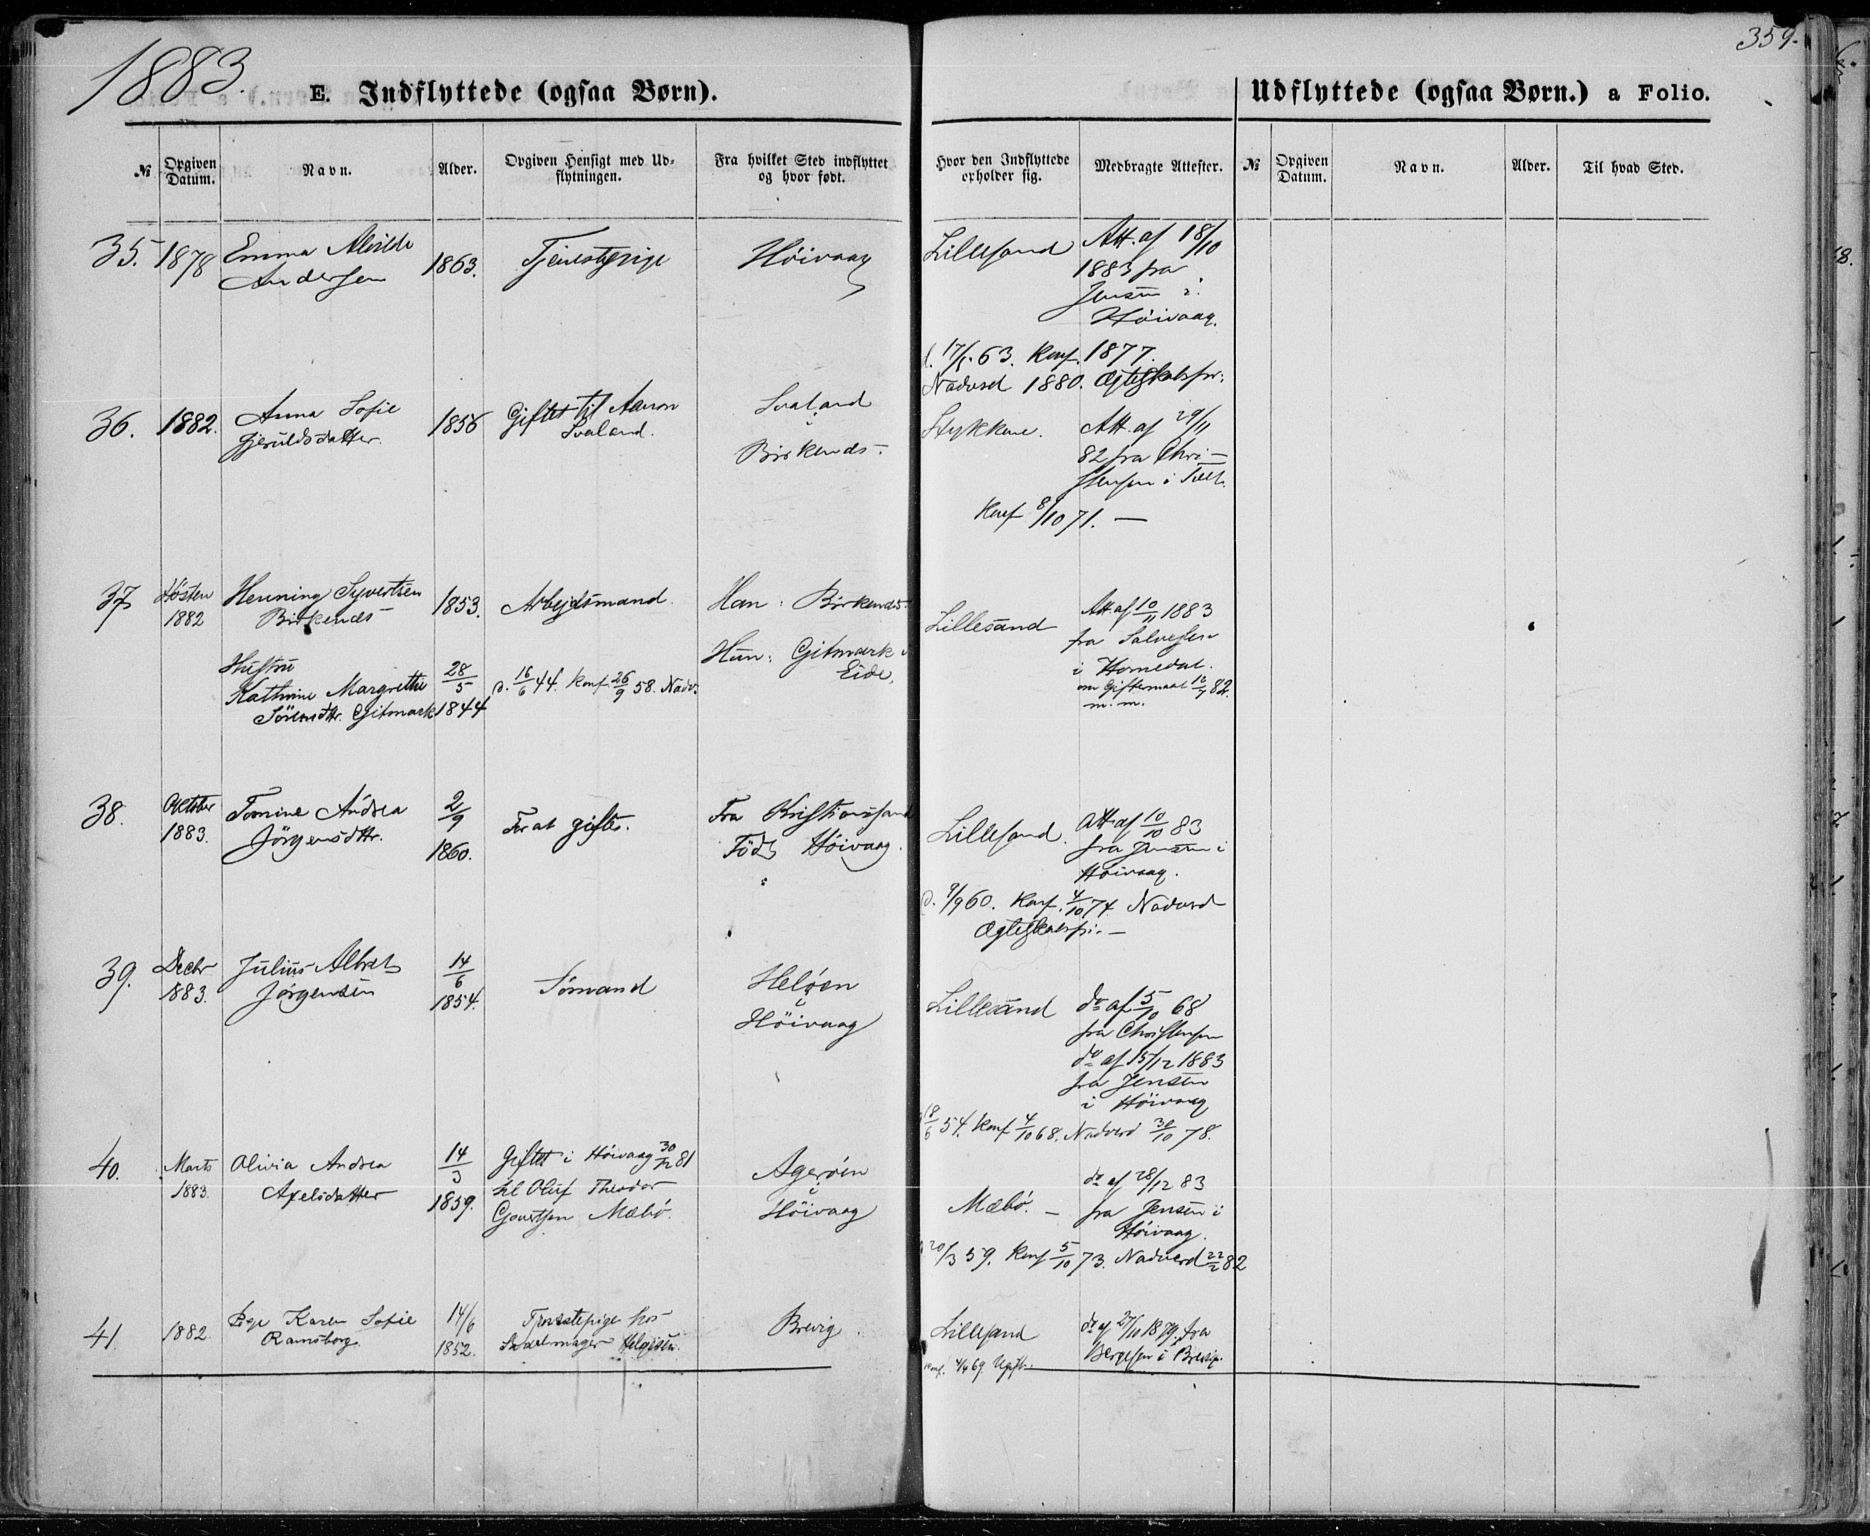 1883.
359.
E. Indflyttede (ogsaa Børn).
Udflyttede (ogsaa Børn.) a Folio.
№
Opgiven Datum.
Navn.
Alder.
Opgiven Hensigt med Ud-
flytningen.
Fra hvilket Sted indflyttet
og hvor født.
Hvor den Indflyttede
opholder sig.
Medbragte Attester.
№
Opgiven Datum.
Navn.
Alder.
Til hvad Sted.
35. 1878 Emma Alvilde
Andersen
1863.
Tjenestepige
Høivaag
Lillesand
Att. af 18/10
1883 fra
Jensen i
Høivaag.
17/5 63. Konf. 1877.
Nadverd 1880. Ægteskabsfri.
36. 1882. Anna Sofie
Gjeruldsdatter.
1856
Giftet til Aanon
Svaland.
Svaland
i
Birkenæs.
Stykkene.
Att. af 29/11
82 fra Chri-
stensen i Tvet.
Konf 8/10 71. —
37 Høsten
1882
Henning Syvertsen
Birkenæs
1853.
Arbejdsmand.
Han: Birkenæs.
Hun: Gitmark i
Eide.
Hustru
Kathrine Margrethe
Sörensdtr. Gitmark
28/5
1844
d. 16/6 44. Konf 26/9 58. Nadv.
Lillesand
Att. af 10/11 1883
fra Salvesen
i Homedal.
om Giftermaal 82.
m. m.
38. Oktober
1883.
Tomine Andrea
Jörgensdtr.
2/9
1860.
For at giftes.
Fra Kristianssand
Född Høivaag.
Lillesand.
Att. af 10/10 83
fra Jensen i
Høivaag.
d. 9/9 60. Konf. 4/10 74 Nadverd
Ægteskabsfri. —
39. Decbr
1883.
Julius Albret
Jørgensen
14/6
1854.
Sømand
Heløen
i
Høivaag
Lillesand
do af 5/10 68
fra Christensen
do af 15/12 1883
fra Jensen
i Høivaag
18/6 54. Konf 4/10 68. Nadverd 30/10 78.
40. Marts
1883.
Olivia Andrea
Axelsdatter
14/3
1859.
Giftet i Høivaag 30/12 81
til Oluf Theodor
Govertsen Mæbö.
Agerøen
i
Høivaag
Mæbö. —
do af 28/12 83
fra Jensen i
Høivaag.
20/3 59. Konf 5/10 73. Nadverd 22/2 82
41. 1882. Pige Karen Sofie
Ramsborg.
14/6
1852.
Tjenestepige hos
Sadelmager Helgesen.
Brevig.
Lillesand
do af 27/10 1879. fra
Bergesen i Brevig.
Konf. 4/4 69 Ugift.